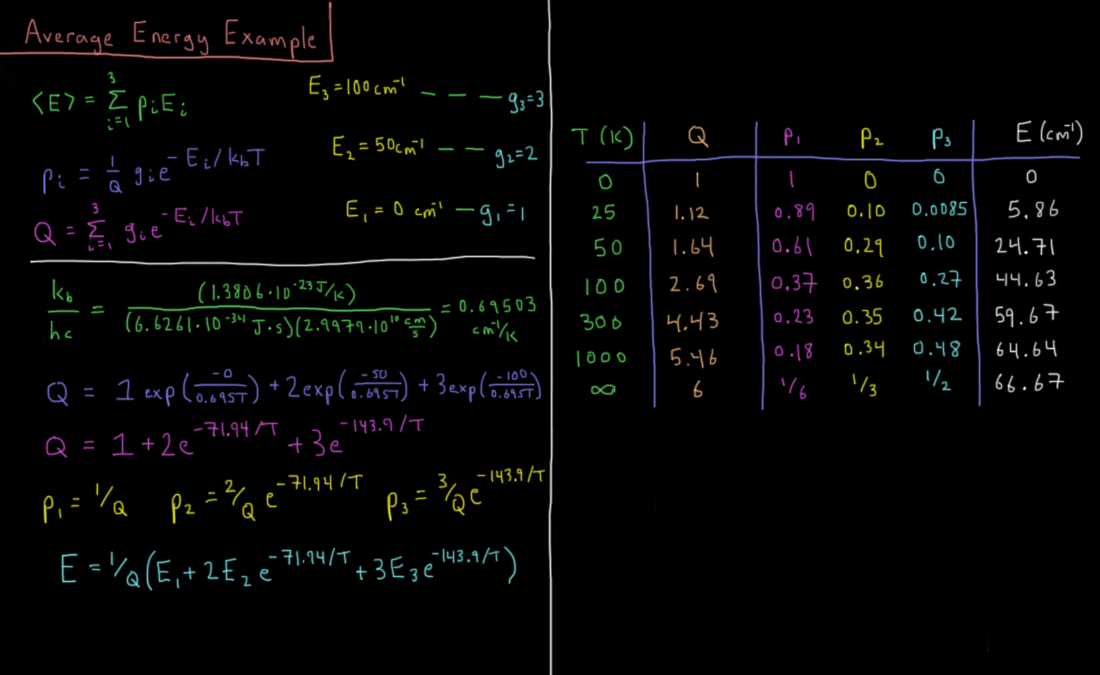 Average Energy Example
⟨E⟩ = Σ_{i=1}^{3} p_i E_i
E₃ = 100 cm⁻¹ — — — g₃=3
p_i = 1/Q g_i e^{-E_i/k_bT}
E₂ = 50 cm⁻¹ — — g₂=2
Q = Σ_{i=1}^{3} g_i e^{-E_i/k_bT}
E₁ = 0 cm⁻¹ — g₁=1
k_b/hc = (1.3806·10⁻²³ J/K) / (6.6261·10⁻³⁴ J·s)(2.9979·10¹⁰ cm/s) = 0.69503 cm⁻¹/K
Q = 1 exp(-0/0.695T) + 2exp(-50/0.695T) + 3exp(-100/0.695T)
Q = 1 + 2e^{-71.94/T} + 3e^{-143.9/T}
p₁ = 1/Q p₂ = 2/Q e^{-71.94/T} p₃ = 3/Q e^{-143.9/T}
E = 1/Q (E₁ + 2E₂e^{-71.94/T} + 3E₃e^{-143.9/T})
T (K) Q p₁ p₂ p₃ E (cm⁻¹)
0 1 1 0 0 0
25 1.12 0.89 0.10 0.0085 5.86
50 1.64 0.61 0.29 0.10 24.71
100 2.69 0.37 0.36 0.27 44.63
300 4.43 0.23 0.35 0.42 59.67
1000 5.46 0.18 0.34 0.48 64.64
∞ 6 1/6 1/3 1/2 66.67